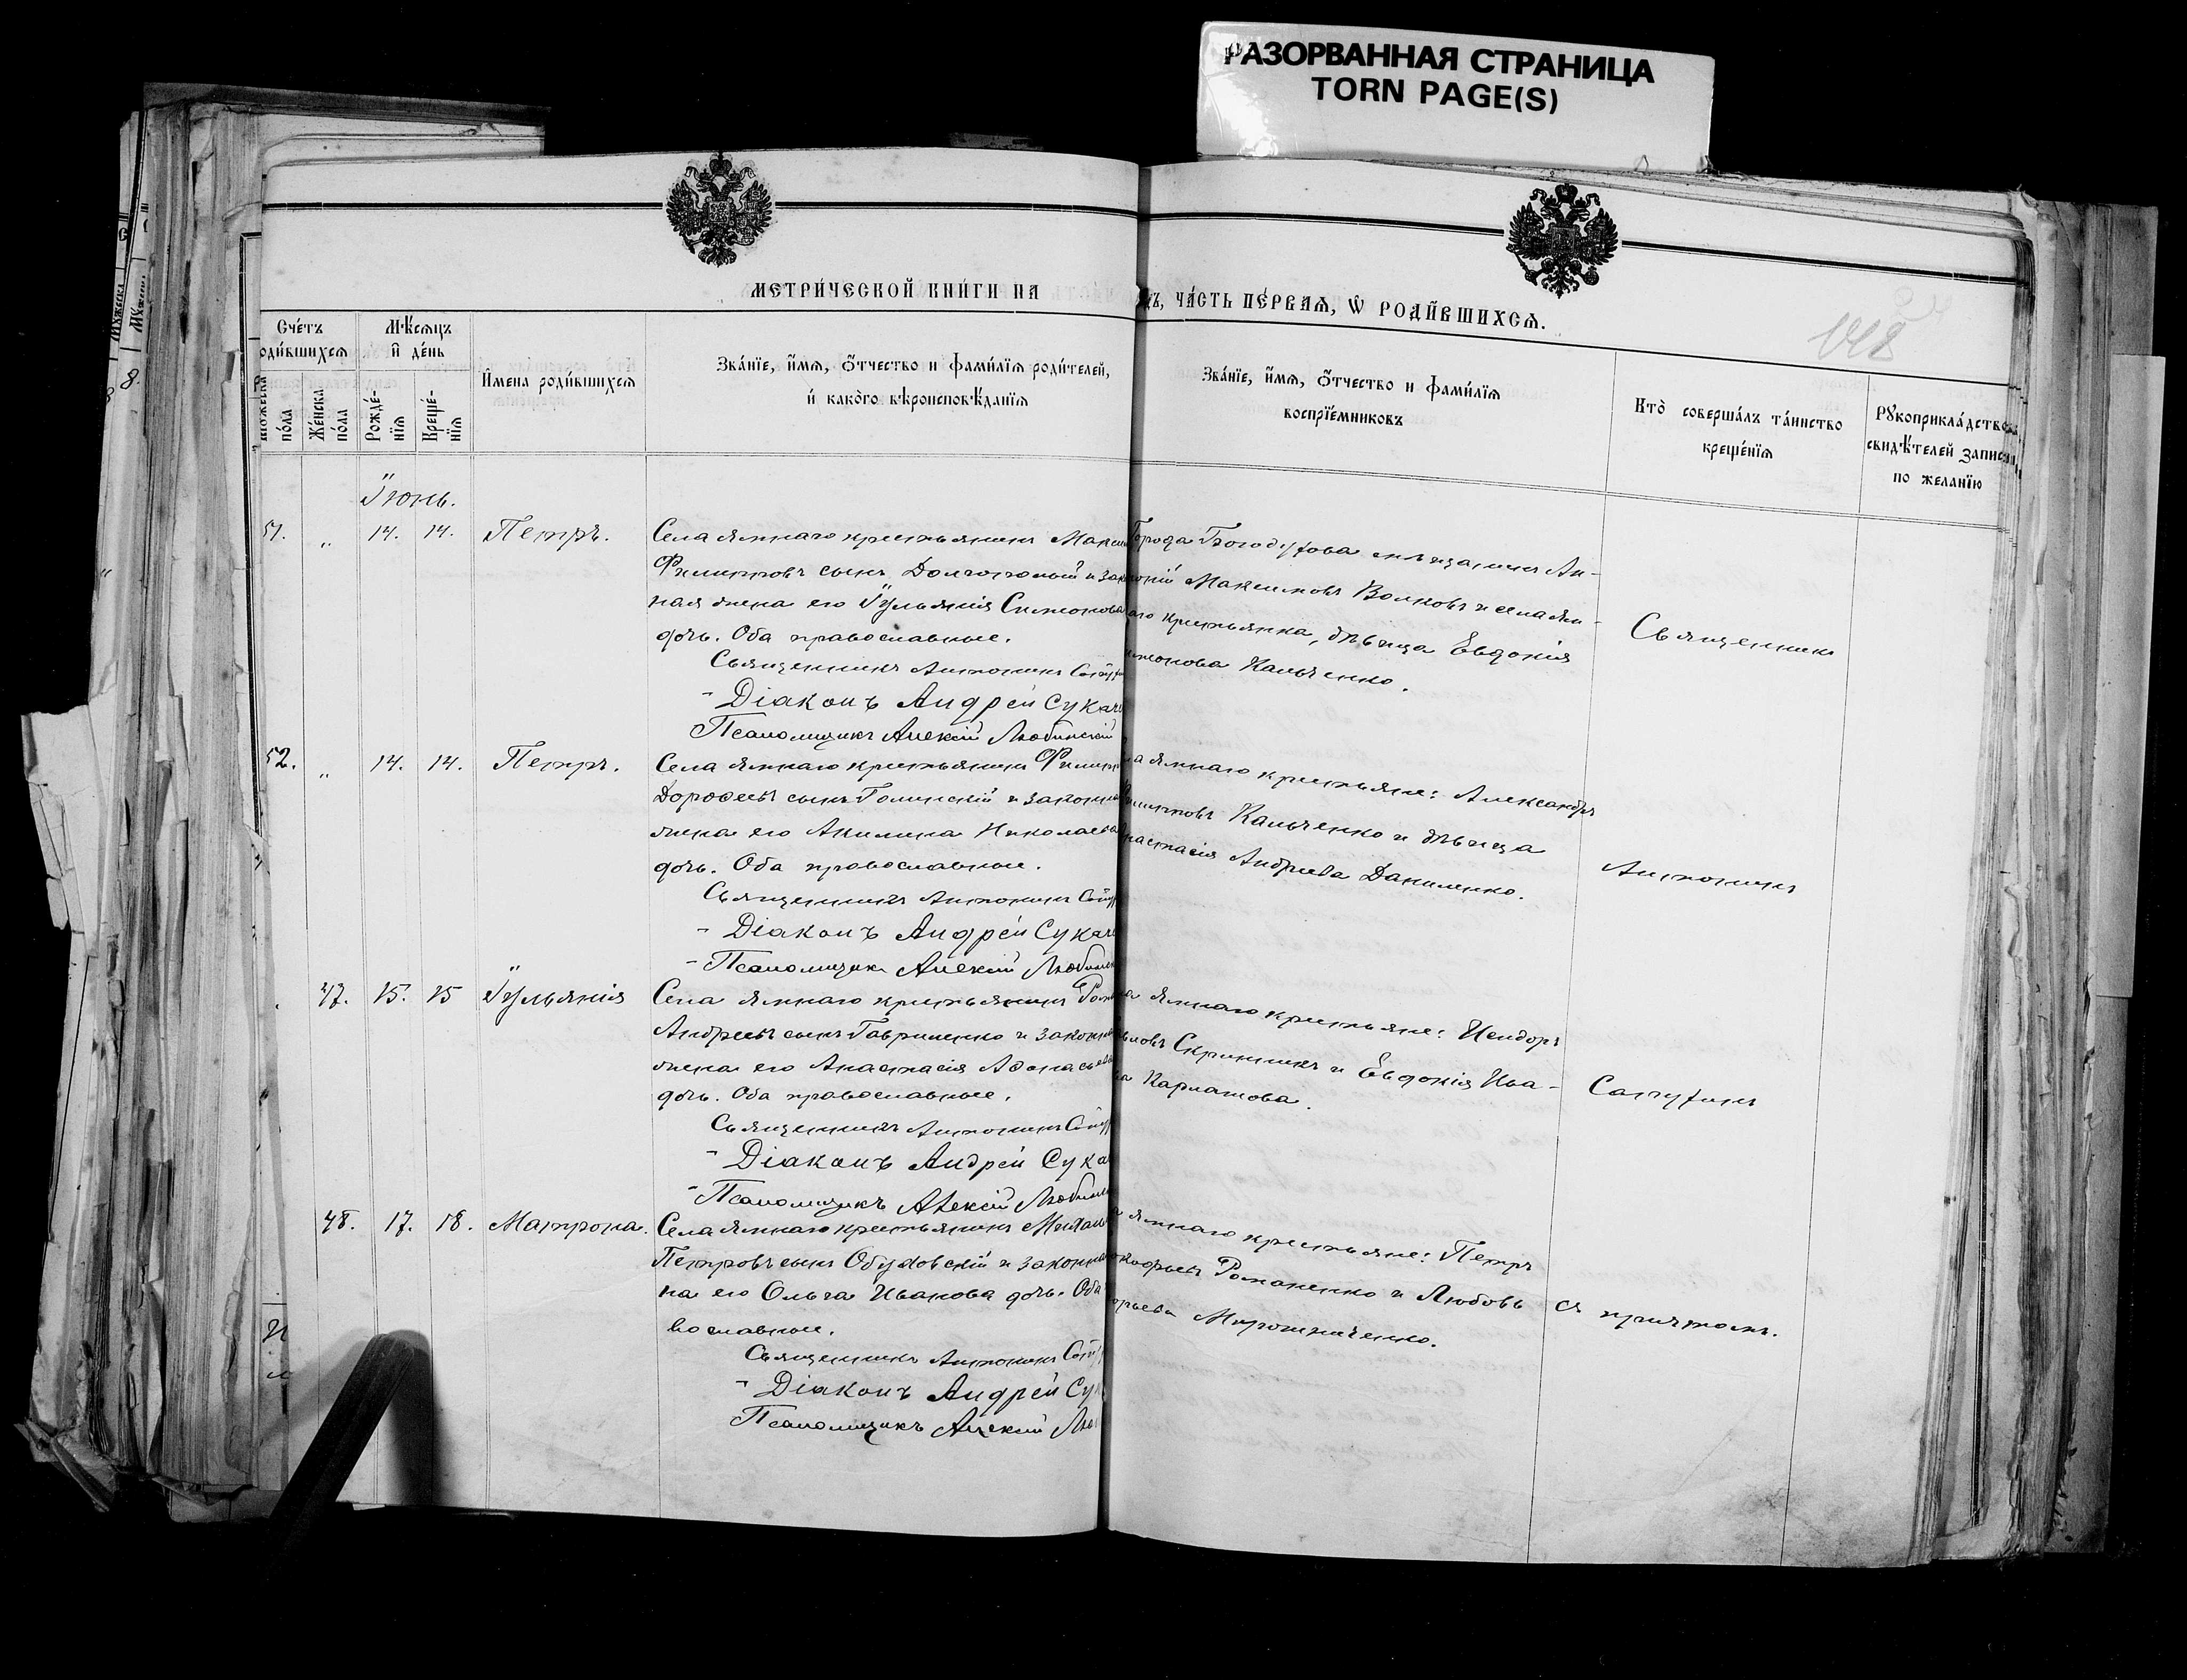 РАЗОРВАННАЯ СТРАНИЦА
TORN PAGE(S)
МЕТРИ́ЧЕСКОЙ КНИ́ГИ НА
ДЪ, ЧА́СТЬ ПЕ́РВАѦ, Ѡ҆ РОДИ́ВШИХСѦ.
142
Сче́тъ
роди́вшихсѧ
Мѣ́сѧцъ
и҆ де́нь
Мꙋ́жеска
по́ла
Же́нска
по́ла
Рожде́-
нїѧ
Креще́-
нїѧ
И҆мена роди́вшихсѧ
Зва́нїе, и҆́мѧ, ѻ҆́тчество и фами́лїѧ роди́телей,
и҆ како́го вѣроисповѣ́данїѧ
Зва́нїе, и҆́мѧ, ѻ҆́тчество и фами́лїѧ
воспрїе́мниковъ
Кто̀ соверша́лъ та́инство
креще́нїѧ
Рꙋкоприкла́дство
свидѣ́телей записи
по жела́нїю
Іюнь.
51. „ 14. 14. Петръ.
Села Ямнаго крестьянинъ Макси
Филипповъ сынъ Долгополый и зак
ная жена его Іульянія Симонова
дочь. Оба православные.
Священникъ Антонинъ
Діаконъ Андрей Сукач
Псаломщикъ Алексій Любинскій
Города Богодухова мѣщанинъ Ан-
ній Максимовъ Волковъ и села Ям-
аго крестьянка, дѣвица Евдокія
имонова Кальченко.
Священникъ
52. „ 14. 14. Петръ.
Села Ямнаго крестьянинъ Филип
Дороѳеевъ сынъ Голинскій и законна
жена его Акилина Николаева
дочь. Оба православные.
Священникъ Антонинъ
Діаконъ Андрей Сукач
Псаломщикъ Алексій Любинск
ла Ямнаго крестьяне: Александръ
илипповъ Кальченко и дѣвица
настасія Андреева Даниленко.
Антонинъ
47. 15. 15 Іульянія
Села Ямнаго крестьянинъ Ром
Андреевъ сынъ Гавриленко и законна
жена его Анастасія Аѳанасьева
дочь. Оба православные.
Священникъ Антонинъ
Діаконъ Андрей Сука
Псаломщикъ Алексій Любинс
ла Ямнаго крестьяне: Исидоръ
вловъ Скрынникъ и Евдокія Ива-
ва Карпатова.
Сапухинъ
48. 17. 18. Матрона.
Села Ямнаго крестьянинъ Михаилъ
Петровъ сынъ Обуховскій и законна
на его Ольга Иванова дочь. Оба
вославные.
Священникъ Антонинъ
Діаконъ Андрей Сук
Псаломщикъ Алексій Люб
а Ямнаго крестьяне: Петръ
окофьевъ Романенко и Любовь
орьева Мирошниченко.
съ причтомъ.